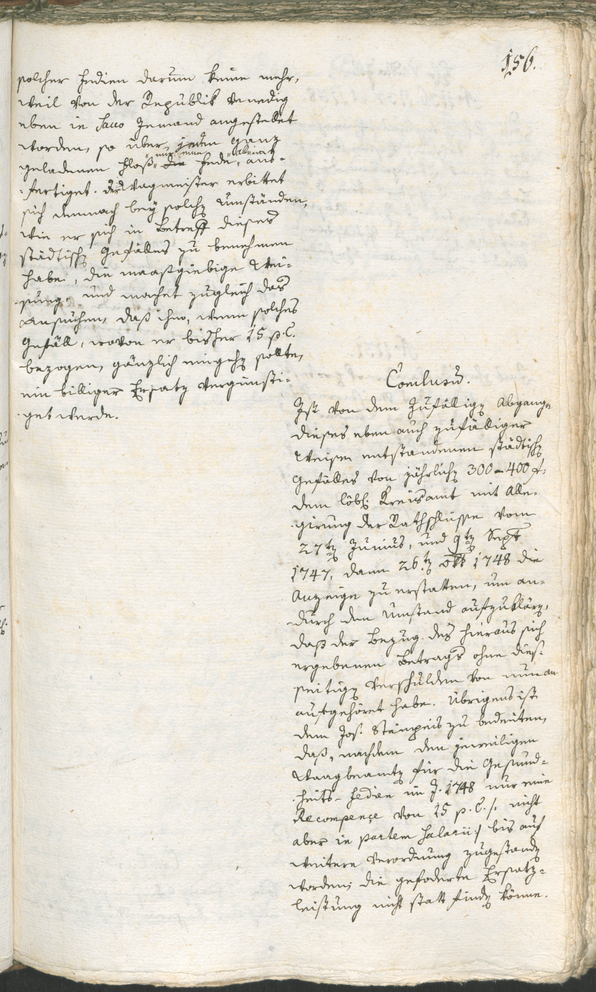 156.
solcher Fedien darum keine mehr,
weil von der Republik Venedig
eben in Sacco Jemand angestellet
worden, so über jeden ganz
geladenen Floß, die Fede, aus-
fertiget. Wagmeister erbittet
sich demnach bey solch Umständen,
wie er sich in Betreff dieses
städtisch Gefälles zu benehmen
habe, die maasgiebige Wei-
sung, und machet zugleich das
Ansuchen, daß ihm, wenn solches
Gefäll, wovon er bisher 15 p. C.
bezogen, gänzlich eingehn sollte,
ein billiger Ersatz vergünsti-
get werde.
Conclusum.
Ist von dem zufällign Abgange
dieses eben auch zufälliger
Weise entstandenen städtisch
Gefälles von jährlich 300–400 f.
dem löbl. Kreisamt mit Alle-
girung der Rathschlüsse vom
27tn Junius, und 9tn Sept.
1747, dann 26tn 8br 1748 die
Anzeige zu erstatten, um an-
durch den Umstand aufzuklären,
daß der Bezug des hieraus sich
ergebenen Betrags ohne dies-
seitign Verschulden von nun an
aufgehöret habe. Übrigens ist
dem Jos. Stempeis zu bedeuten,
daß, nachdem den jeweiligen
Waagbeamtn für die Gesund-
heits-Fedien im J. 1748 nur eine
Recompence von 15 p. C. /: nicht
aber in partem salarii :/ bis auf
weitere Verordnung zugestandn
worden, die gefoderte Ersatz-
leistung nicht statt findn könne.